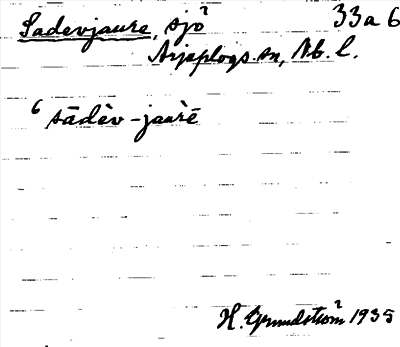 Sadevjaure, sjö 33a6
Arjeplogs sn, Nb. l.
6 sādèv-jaùrē
H. Grundström 1935